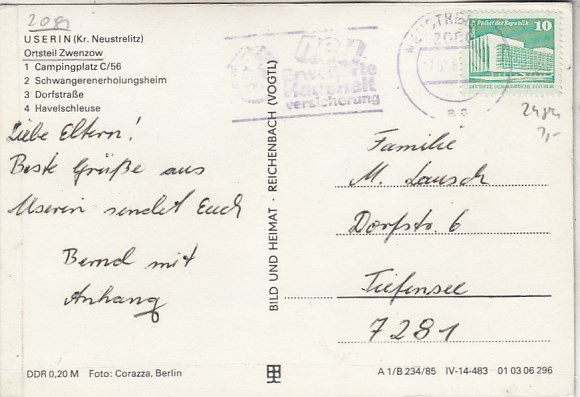 2081
USERIN (Kr. Neustrelitz)
Ortsteil Zwenzow
1 Campingplatz C/56
2 Schwangerenerholungsheim
3 Dorfstraße
4 Havelschleuse
Liebe Eltern!
Beste Grüße aus
Userin sendet Euch
Bernd mit
Anhang
DDR 0,20 M Foto: Corazza, Berlin
BILD UND HEIMAT · REICHENBACH (VOGTL)
neu
Erweiterte
Haushalt
versicherung
Palast der Republik
10
2484
Familie
M. Lausch
Dorfstr. 6
Tiefensee
7281
A 1/B 234/85 IV-14-483 01 03 06 296